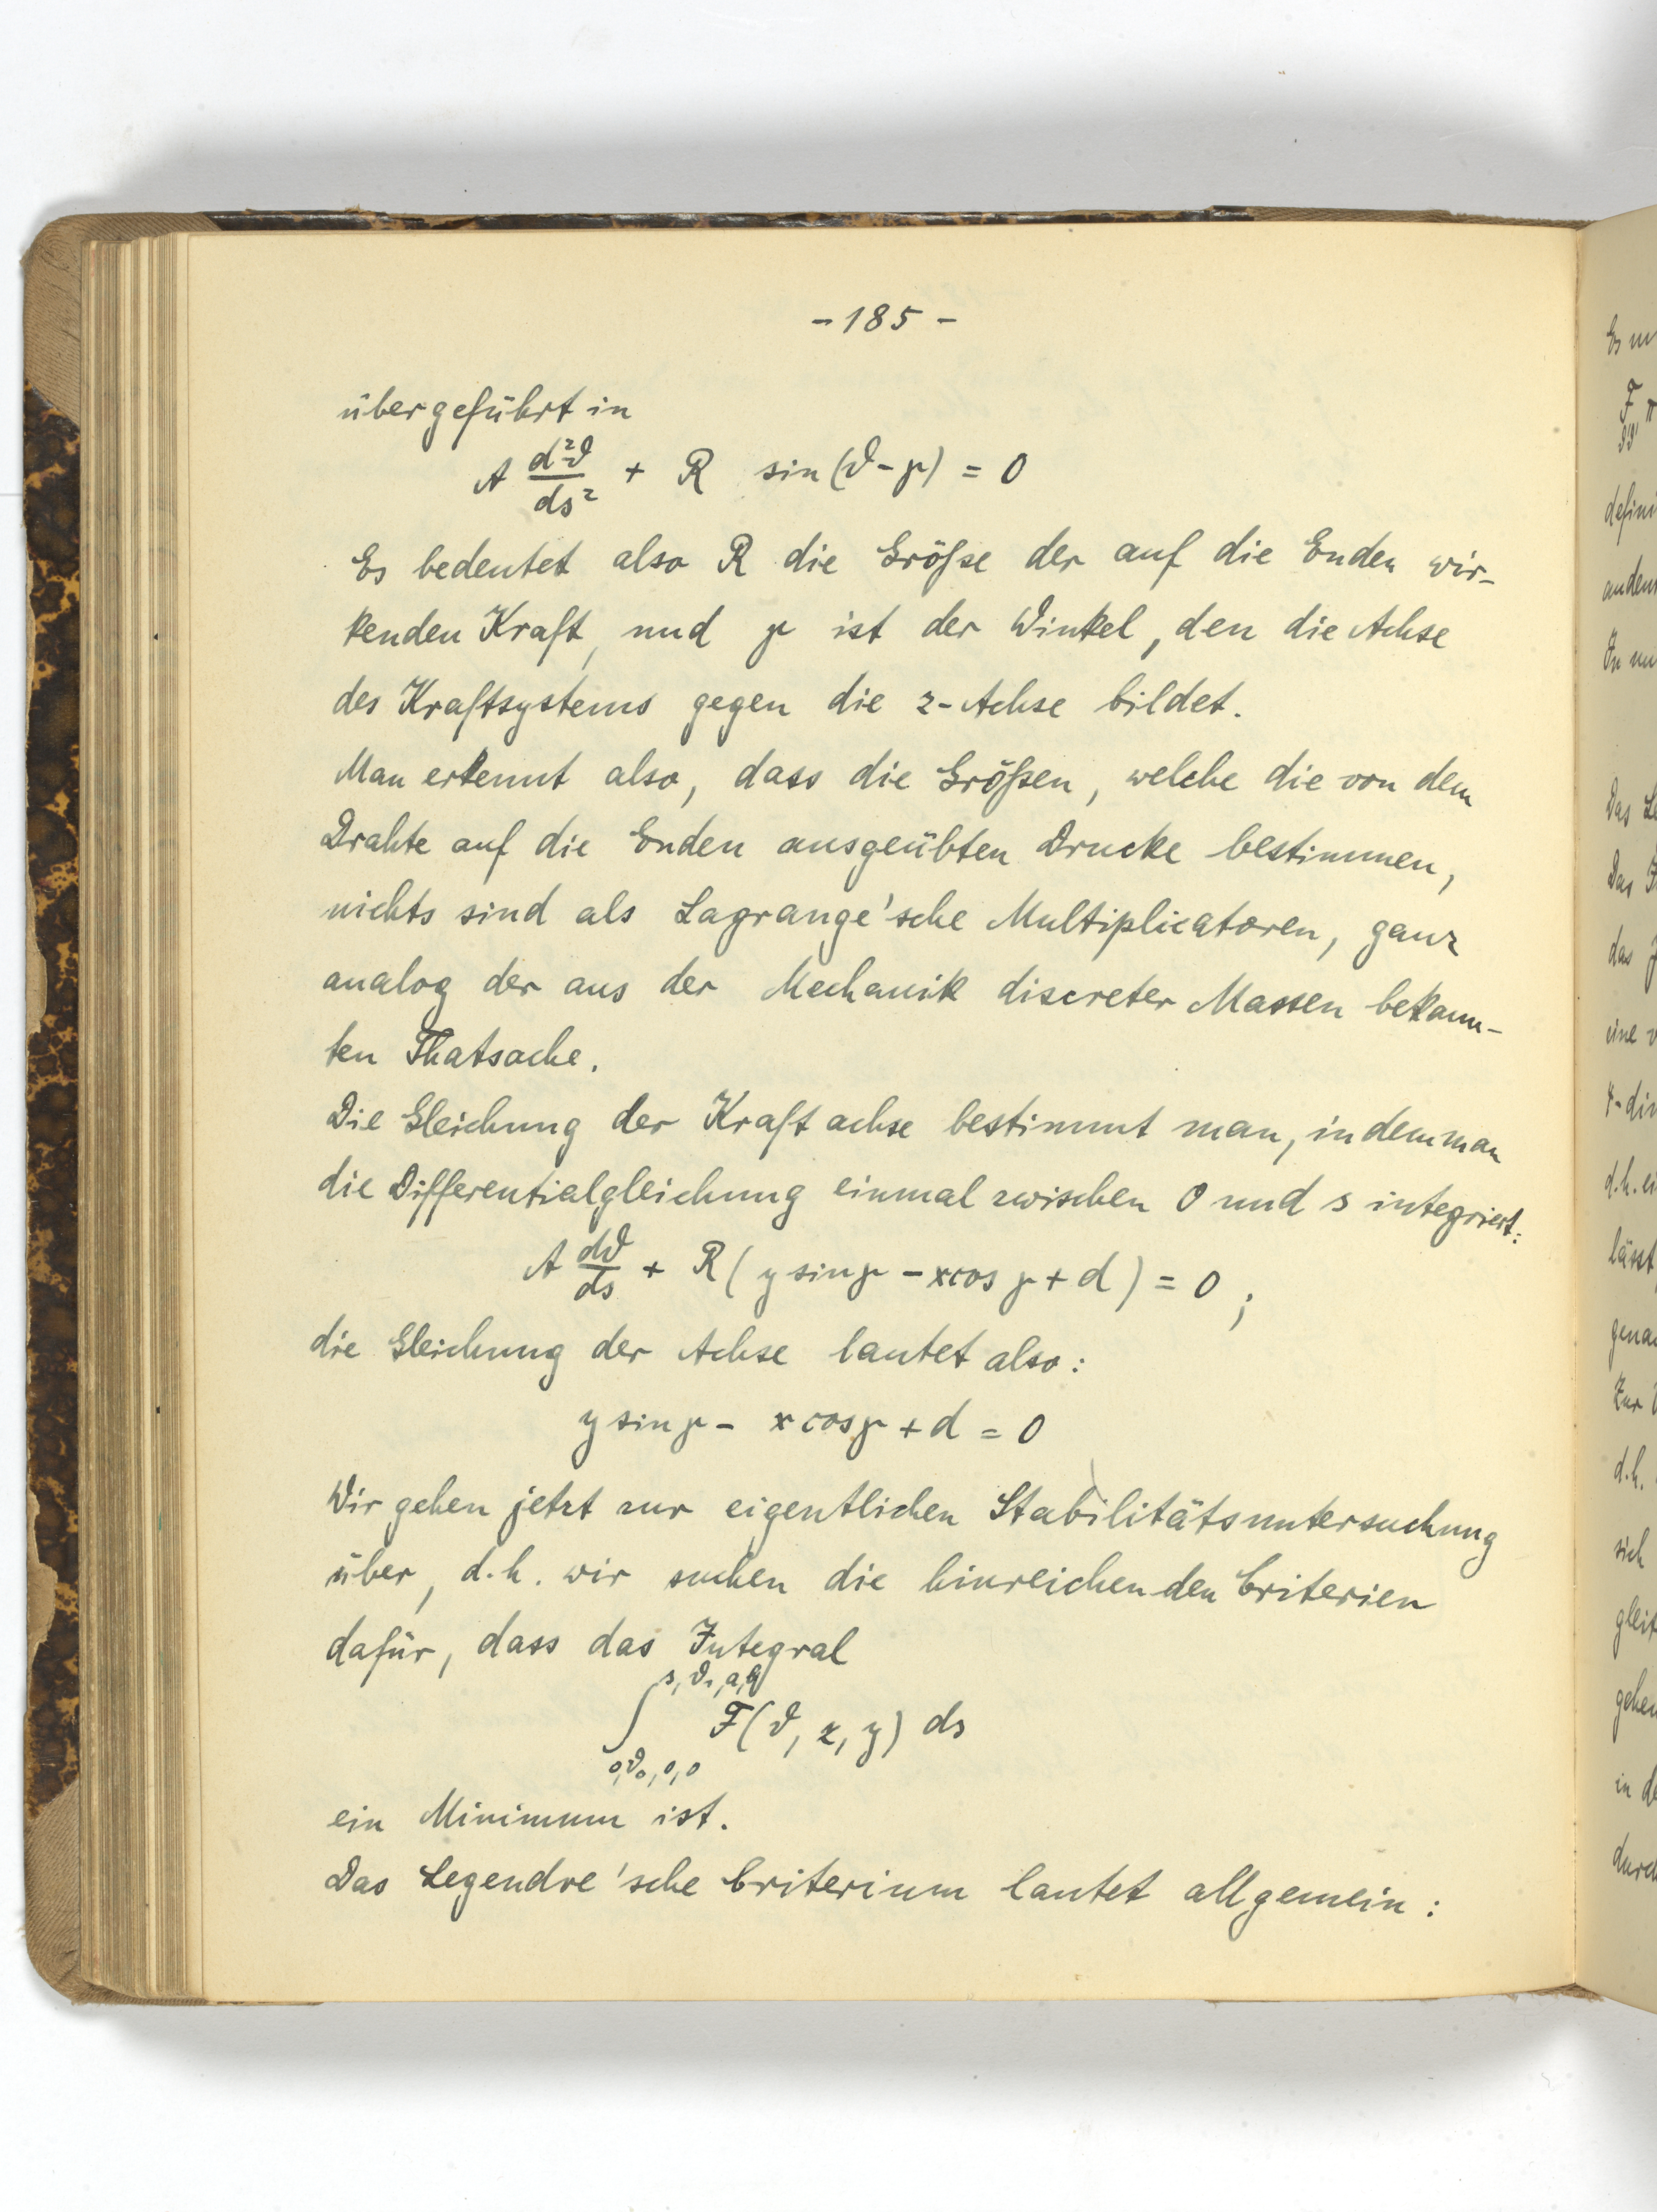 - 185 -
übergeführt in
A d²ϑ/ds² + R sin (ϑ - γ) = 0
Es bedeutet also R die Größe der auf die Enden wir-
kenden Kraft, und γ ist der Winkel, den die Achse
des Kraftsystems gegen die z-Achse bildet.
Man erkennt also, dass die Größen, welche die von dem
Drahte auf die Enden ausgeübten Drucke bestimmen,
nichts sind als Lagrange'sche Multiplicatoren, ganz
analog der aus der Mechanik discreter Massen bekann-
ten Thatsache.
Die Gleichung der Kraftachse bestimmt man, indem man
die Differentialgleichung einmal zwischen 0 und s integriert:
A dϑ/ds + R (y sin γ - x cos γ + d) = 0;
die Gleichung der Achse lautet also:
y sin γ - x cos γ + d = 0
Wir gehen jetzt zur eigentlichen Stabilitätsuntersuchung
über, d.h. wir suchen die hinreichenden Criterien
dafür, dass das Integral
∫ F(ϑ, x, y) ds
0, ϑ₀, 0, 0
ein Minimum ist.
Das Legendre'sche Criterium lautet allgemein: